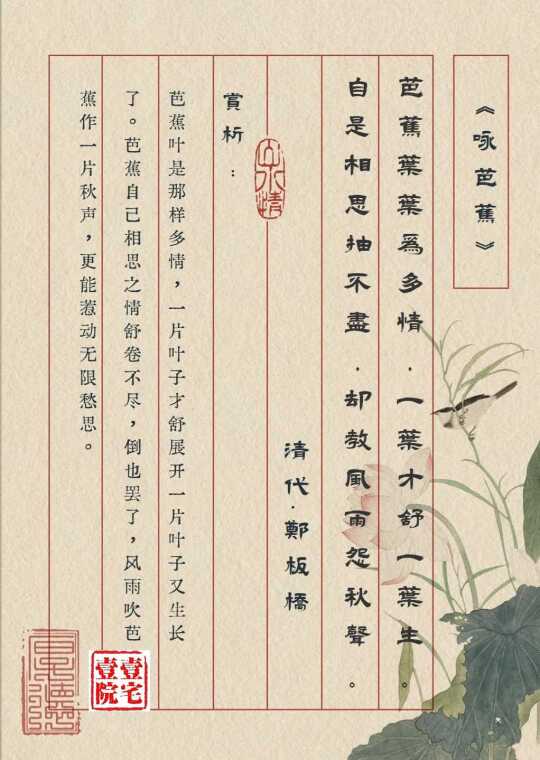 《咏芭蕉》
芭蕉葉葉爲多情．一葉才舒一葉生。
自是相思抽不盡．却教風雨怨秋聲。
清代·鄭板橋
賞析：
芭蕉叶是那样多情，一片叶子才舒展开一片叶子又生长
了。芭蕉自己相思之情舒卷不尽，倒也罢了，风雨吹芭
蕉作一片秋声，更能惹动无限愁思。
壹宅
壹院